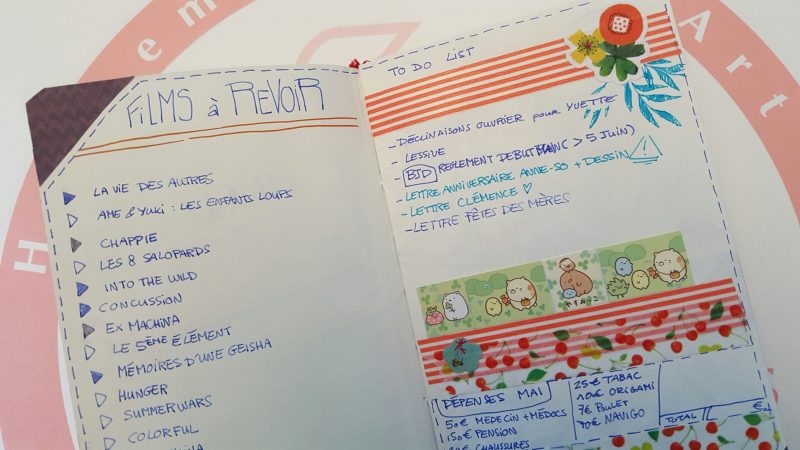 FILMS à REVOIR
LA VIE DES AUTRES
AME & YUKI : LES ENFANTS LOUPS
CHAPPIE
LES 8 SALOPARDS
INTO THE WILD
CONCUSSION
EX MACHINA
LE 5ÈME ÉLÉMENT
MÉMOIRES D'UNE GEISHA
HUNGER
SUMMER WARS
COLORFUL
TO DO LIST
- DÉCLINAISONS OUVRIER pour YVETTE
- LESSIVE
- BJD REGLEMENT DEBUT (> 5 JUIN)
- LETTRE ANNIVERSAIRE ANNE-SO + DESSIN
- LETTRE CLÉMENCE ♡
- LETTRE FÊTES DES MÈRES
DÉPENSES MAI
50€ MÉDECIN + MÉDOCS
150€ PENSION
CHAUSSURES
25€ TABAC
10€ ORIGAMI
7€ POULET
70€ NAVIGO
TOTAL €
Art